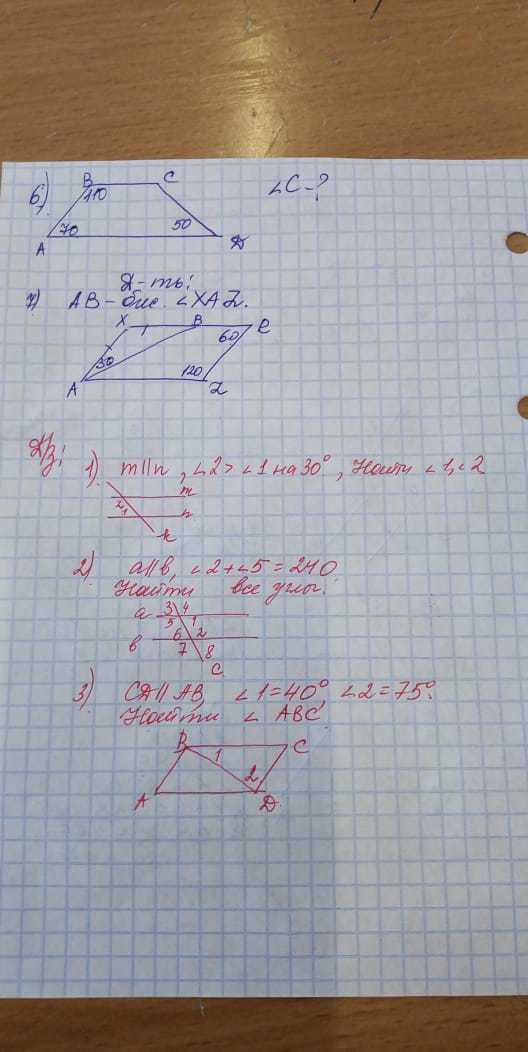 6) B C ∠C-?
110
70 50
A D
Д-ть:
7) AB - бис. ∠XAZ.
X 1 B P
30 60
120
A Z
Д/з:
1) m||n, ∠2 > ∠1 на 30°, Найти ∠1, ∠2
m
2 1 n
k
2) a||b, ∠2+∠5=240
Найти все углы.
a 3 4
5 1
в 6 2
7 8
c
3) CD||AB, ∠1=40°, ∠2=75°.
Найти ∠ ABC
B C
1
2
A D